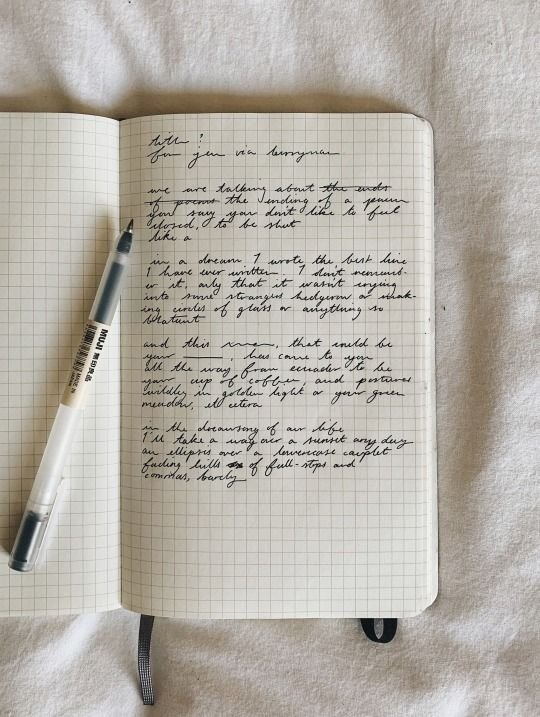 title ?
for jen via berryman
we are talking about the ends
of poems the ending of a poem
you say you don't like to feel
closed, to be shut
like a
in a dream I wrote the best line
I have ever written. I don't rememb-
er it, only that it wasn't crying
into some strangers hedgerow or
ing circles of glass or anything so
blatant
and this, that could be
your ____, has come to you
all the way from ecuador to be
your cup of coffee, and postures
wildly in golden light or your green
meadow, et cetera
in the dreamsong of our life
I'll take a way over a sunset any day
an ellipses over a lowercase couplet
fading hills of full-stops and
commas, barely
MUJI 無印良品